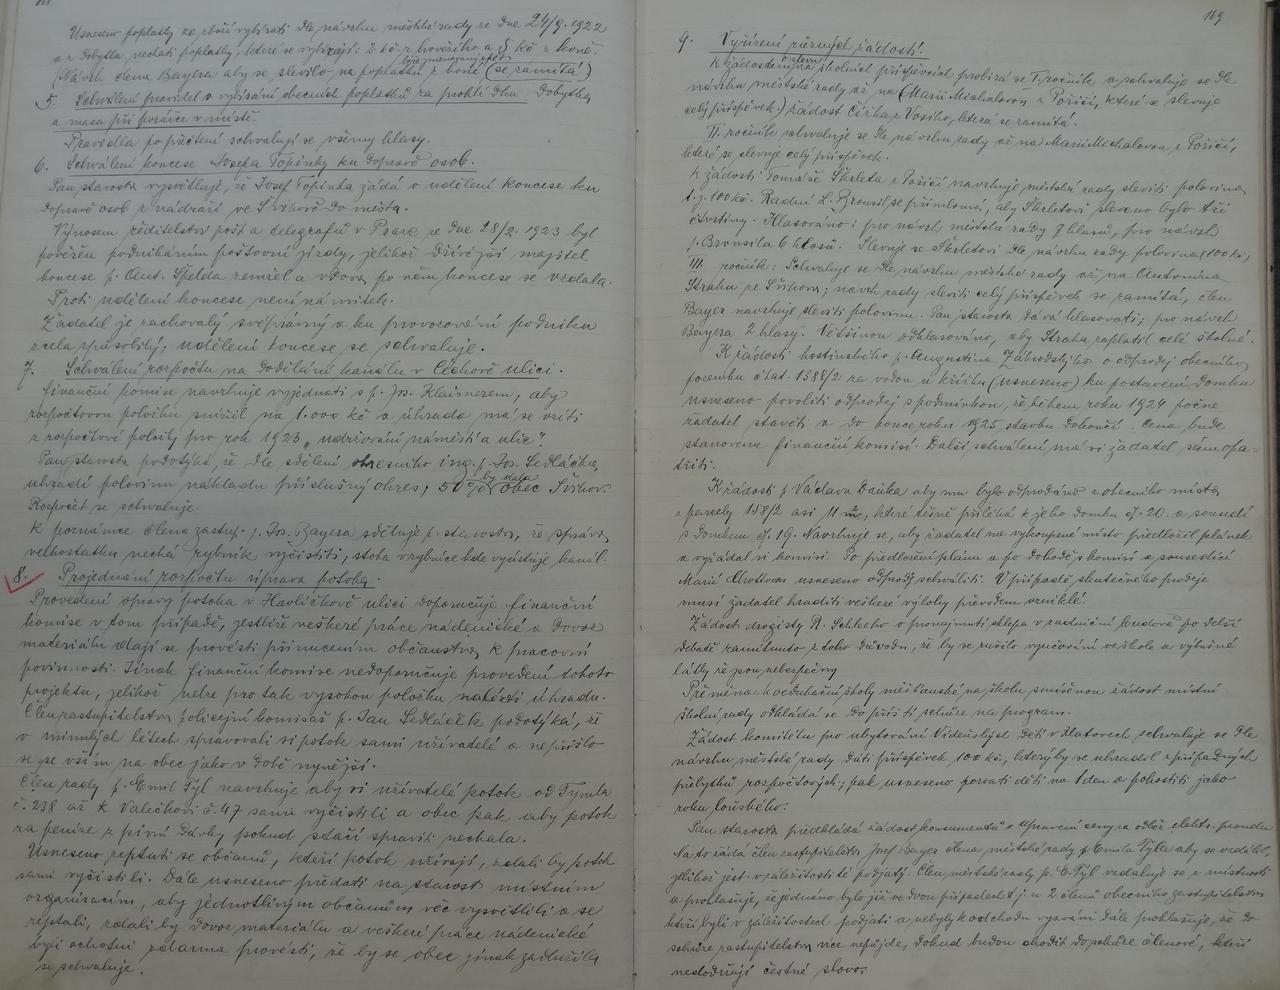 Usneseno poplatky ze zboží vybírati dle návrhu městské rady ze dne 24/9. 1922
a z dobytka nechati poplatky, které se vybírají: 2 kč z hovězího a 5 kč z koně.
(Návrh člena Bayera aby se slevilo na poplatku z koně (se zamítá)
5. Schválení pravidel o vybírání obecních poplatků za prohlídku dobytka
a masa při porážce v místě.
Pravidla po přečtení schvalují se všemi hlasy.
6. Schválení koncese Josefa Topinky ku dopravě osob.
Pan starosta vysvětluje, že Josef Topinka žádá o udělení koncese ku
dopravě osob z nádraží ve Švihově do města.
Výnosem ředitelství pošt a telegrafů v Praze ze dne 28/2. 1923 byl
pověřen podnikáním poštovní jízdy, jelikož dřívější majitel
koncese p. Ant. Špelda zemřel a vdova po něm koncese se vzdala.
Proti udělení koncese není námitek.
Žadatel je zachovalý svéprávný a ku provozování podniku
zcela způsobilý; udělení koncese se schvaluje.
7. Schválení rozpočtu na dodělání kanálu v Čechově ulici.
Finanční komise navrhuje vyjednati s p. Jos. Klaisnerem, aby
rozpočtovou položku snížil na 1.000 kč a úhrada má se vzíti
z rozpočtové položky pro rok 1923 „udržování náměstí a ulic".
Pan starosta podotýká, že dle sdělení okresního ing. p. Jos. Sedláčka,
uhradí polovinu nákladu příslušný okres, 50% by dala obec Švihov.
Rozpočet se schvaluje.
K poznámce člena zastup. p. Jos. Bayera sděluje p. starosta, že správa
velkostatku nechá rybník vyčistiti, stoka v rybníce kde vyúsťuje kanál.
8. Projednání rozpočtu úprava potoka.
Provedení opravy potoka v Havlíčkově ulici doporučuje finanční
komise v tom případě, jestliže veškeré práce nádenické a dovoz
materiálu dají se provésti přinucením občanstva k pracovní
povinnosti. Jinak finanční komise nedoporučuje provedení tohoto
projektu, jelikož nelze pro tak vysokou položku nalézti úhradu.
Člen zastupitelstva policejní komisař p. Jan Sedláček podotýká, že
v minulých létech spravovali si potok sami uživatelé a nepřišlo
se se vším na obec jako v době nynější.
Člen rady p. Emil Týl navrhuje aby si uživatelé potok od Tymla
č. 238 až k Valečkovi č. 47 sami vyčistili a obec pak aby potok
za peníze z pivní dávky pokud stačí spraviti nechala.
Usneseno zeptati se občanů, kteří potok užívají, zdali by potok
sami vyčistili. Dále usneseno předati na starost místním
organisacím, aby jednotlivým občanům věc vysvětlili a se
zeptali, zdali by dovoz materiálu a veškeré práce nádenické
byli ochotni zdarma provésti, že by se obec jinak zadlužila
se schvaluje.
169
9. Vyřízení různých žádostí.
K žádostem o slevu na školních příspěvcích probírá se I. ročník a schvaluje se dle
návrhu městské rady až na (Marii Michalovou z Poříčí, které se slevuje
celý příspěvek.) žádost Čížka z Vosího, která se zamítá.
II. ročník schvaluje se dle návrhu rady až na Marii Michalovou z Poříčí,
které se slevuje celý příspěvek.
K žádosti Tomáše Škrleta z Poříčí navrhuje městská rady sleviti polovinu
t. j. 100 kč. Radní L. Brousil se přimlouvá, aby Škrletovi sleveno bylo tři
čtvrtiny. Hlasováno: pro návrh městské rady 7 hlasů, pro návrh
p. Brousila 6 hlasů. Slevuje se Škrletovi dle návrhu rady polovina (100 kč)
III. ročník: Schvaluje se dle návrhu městské rady až na Antonína
Straku ze Švihova; návrh rady sleviti celý příspěvek se zamítá, člen
Bayer navrhuje sleviti polovinu. Pan starosta dává hlasovati; pro návrh
Bayera 2 hlasy. Většinou odhlasováno, aby Straka zaplatil celé školné.
K žádosti hostinského p. Augustina Zábrodského o odprodej obecního
pozemku č. kat. 1388/2 za vodou u křížku (usneseno) ku postavení domku
usneseno povoliti odprodej s podmínkou, že během roku 1924 počne
žadatel stavěti a do konce roku 1925 stavbu dokončí. Cena bude
stanovena finanční komisí. Další schválení má si žadatel sám opa-
třiti.
K žádosti p. Václava Dauka aby mu bylo odprodáno z obecního místa
z parcely 158/2 asi 11 m, které těsně přiléhá k jeho domku čp. 20. a sousedí
s domkem čp. 19. Navrhuje se, aby žadatel na vykoupené místo předložil plánek
a vyžádal si komisi. Po předložení plánu a po dohodě s komisí a sousedící
Marií usneseno odprodej schváliti. V případě skutečného prodeje
musí žadatel hraditi veškeré výlohy převodem vzniklé.
Žádost drogisty R. Schlecho o pronajmutí sklepa v radniční budově po delší
debatě zamítnuto z toho důvodu, že by se rušilo vyučování ve škole a výbušné
látky že jsou nebezpečny
Přeměna koedukační školy měšťanské na školu smíšenou žádost místní
školní rady odkládá se do příští schůze na program.
Žádost komitétu pro ubytování Vídeňských dětí v Klatovech schvaluje se dle
návrhu městské rady dáti příspěvek 100 kč, který by se uhradil z případných
přebytků rozpočtových; pak usneseno pozvati děti na 1 den a pohostiti jako
roku loňského.
Pan starosta předkládá žádost konsumentů o upravení ceny za odběr elektr. proudu
Na to žádá člen zastupitelstva Josef Bayer člena městské rady p. Emila Týla aby se vzdálil,
jelikož jest v záležitosti té podjatý. Člen městské rady p. E. Týl vzdaluje se z místnosti
a prohlašuje, že jednáno bylo již ve dvou případech t. j. u 2 členů obecního zastupitelstva
kteří byli v záležitostech podjati a nebyli k odchodu vyzváni dále prohlašuje, že do
schůze zastupitelstva více nepřijde, dokud budou choditi do schůze členové, kteří
nedodržují čestné slovo.